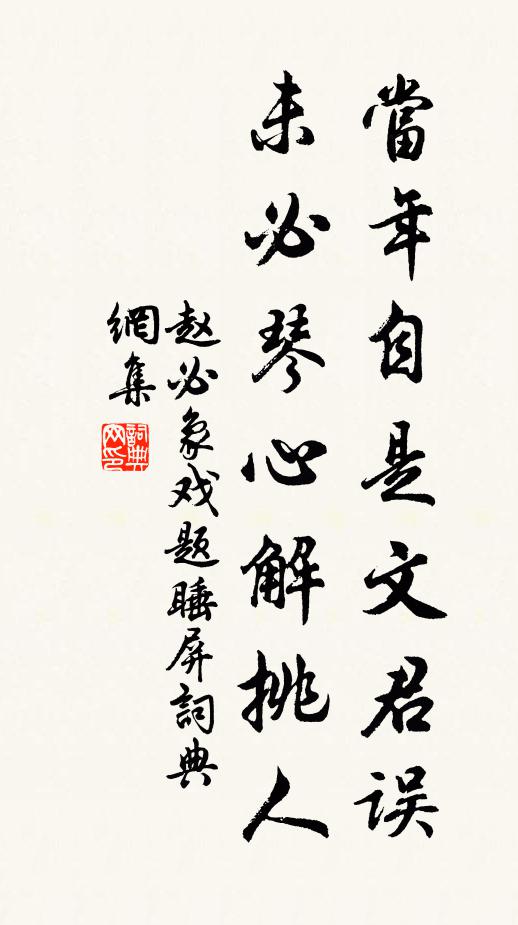 當年自是文君误
未必琴心解挑人
赵必象戏题睡屏詞典
網集
詞典网印